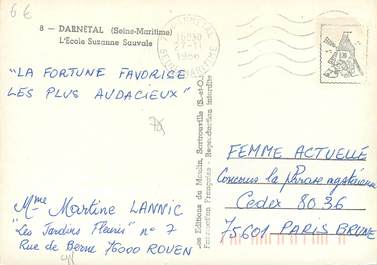 6€
8 - DARNÉTAL (Seine-Maritime)
L'École Suzanne Sauvale
"LA FORTUNE FAVORISE
LES PLUS AUDACIEUX"
Mme Martine LANNIC
"Les Jardins Fleuris" n° 7
Rue de Berne 76000 ROUEN
Les Editions du Moulin, Sartrouville (S.-et-O.)
Fabrication Française - Reproduction interdite
SEINE MARITIME
FEMME ACTUELLE
Concours la Phrase mystérieuse
Cedex 80 36
75601 PARIS BRUNE